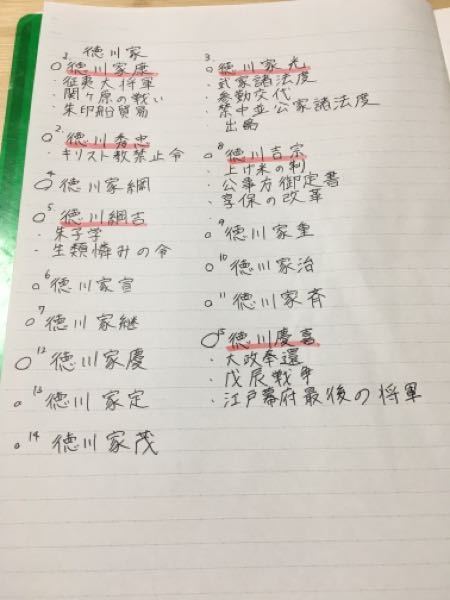 徳川家
1.
○徳川家康
・征夷大将軍
・関ヶ原の戦い
・朱印船貿易
○2.徳川秀忠
・キリスト教禁止令
○4徳川家綱
○5徳川綱吉
・朱子学
・生類憐みの令
○6徳川家宣
○7徳川家継
○12徳川家慶
○13徳川家定
○14徳川家茂
3.
○徳川家光
・武家諸法度
・参勤交代
・禁中並公家諸法度
・出島
○8徳川吉宗
・上げ米の制
・公事方御定書
・享保の改革
○9徳川家重
○10徳川家治
○11徳川家斉
○15徳川慶喜
・大政奉還
・戊辰戦争
・江戸幕府最後の将軍